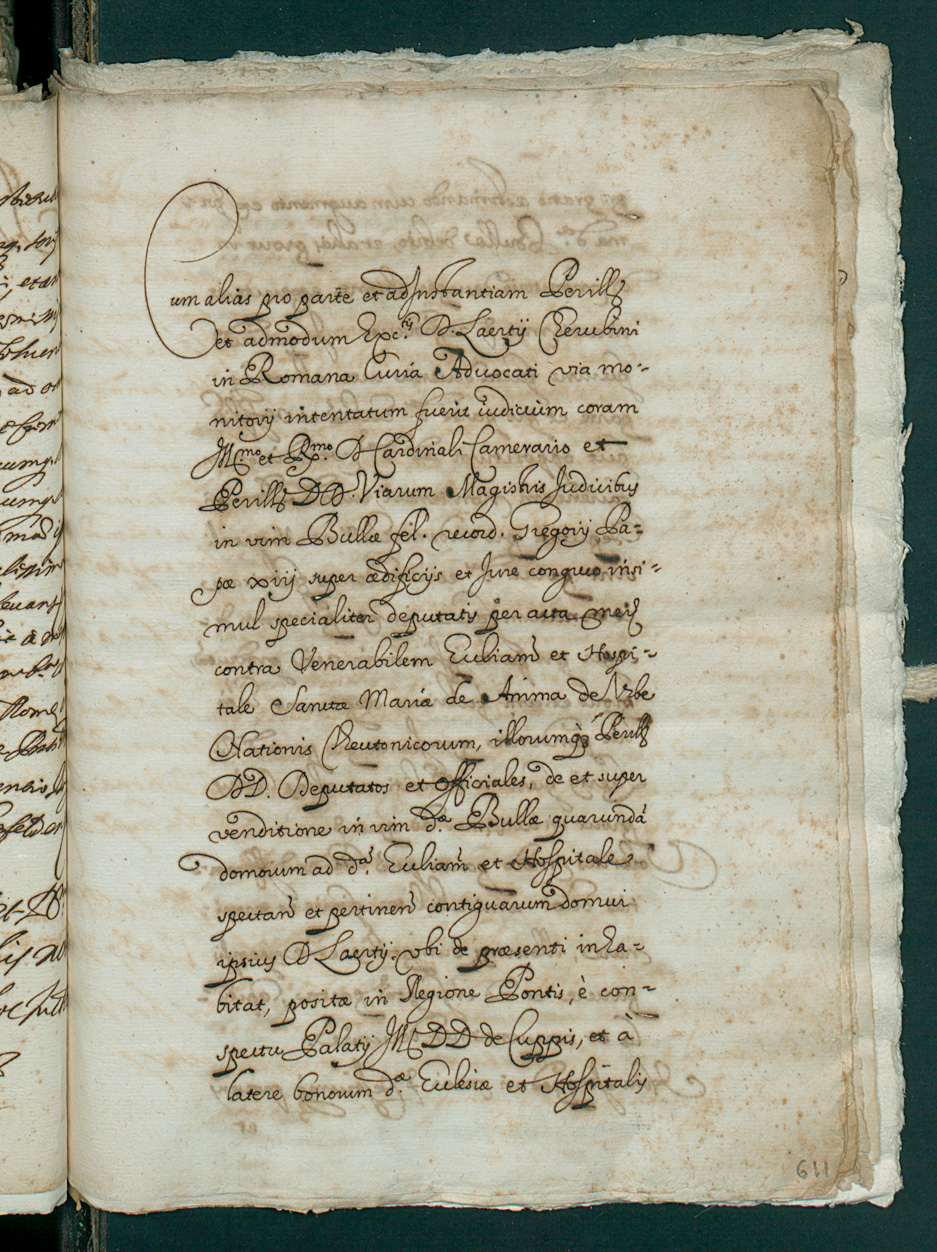 Cum aliàs pro parte et ad Instantiam Perill.
et admodum Exc.tis D. Laertij Cherubini
in Romana Curia Advocati via mo-
nitorij intentatum fuerit iudicium coram
Ill.mo et R.mo D Cardinali Camerario et
Perill. DD. Viarum Magistris Judicibus
in vim Bullæ fel. record. Gregorij Pa-
pæ xiij super ædificijs et Jure congruo insi-
mul specialiter deputatis per acta mei
contra Venerabilem Eccliam et Hospi-
tale Sanctæ Mariæ de Anima de Vrbe
Nationis Theutonicorum, illorumq. Perill.
DD. Deputatos et Officiales, de et super
venditione in vim d.æ Bullæ quarundã
domorum ad d.ã Eccliam et Hospitale
spectañ et pertineñ contiguarum domui
ipsius D Laertij, vbi de præsenti inha-
bitat, positæ in Regione Pontis, è con-
spectu Palatij Ill. DD de Cuppis, et à
latere bonorum d.æ Ecclesiæ et Hospitalis
611